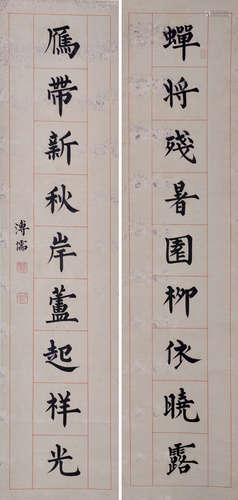 蟬將殘暑園柳依曉露
鴈帶新秋岸蘆起祥光
溥儒